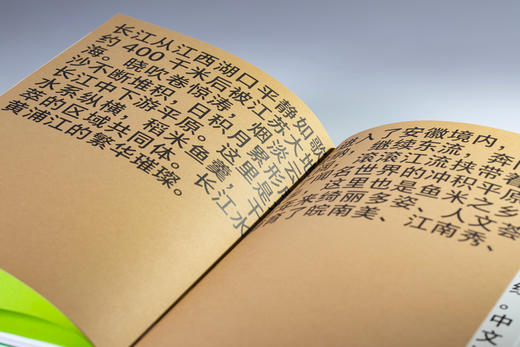 长江从江西湖口平静如歌
约 400 千米后被江苏大地
海。晓吹卷惊涛，烟淡云
沙不断堆积，日积月累形
长江中下游平原。这里是
水系纵横，稻米鱼羹，
萃的区域共同体。长江水
黄浦江的繁华璀璨。
入了安徽境内，奔
继续东流，
滚滚江流挟带着
闻名世界的冲积平原
这里也是鱼米之乡
绮丽多姿、人文荟
了皖南美、江南秀、
。中文